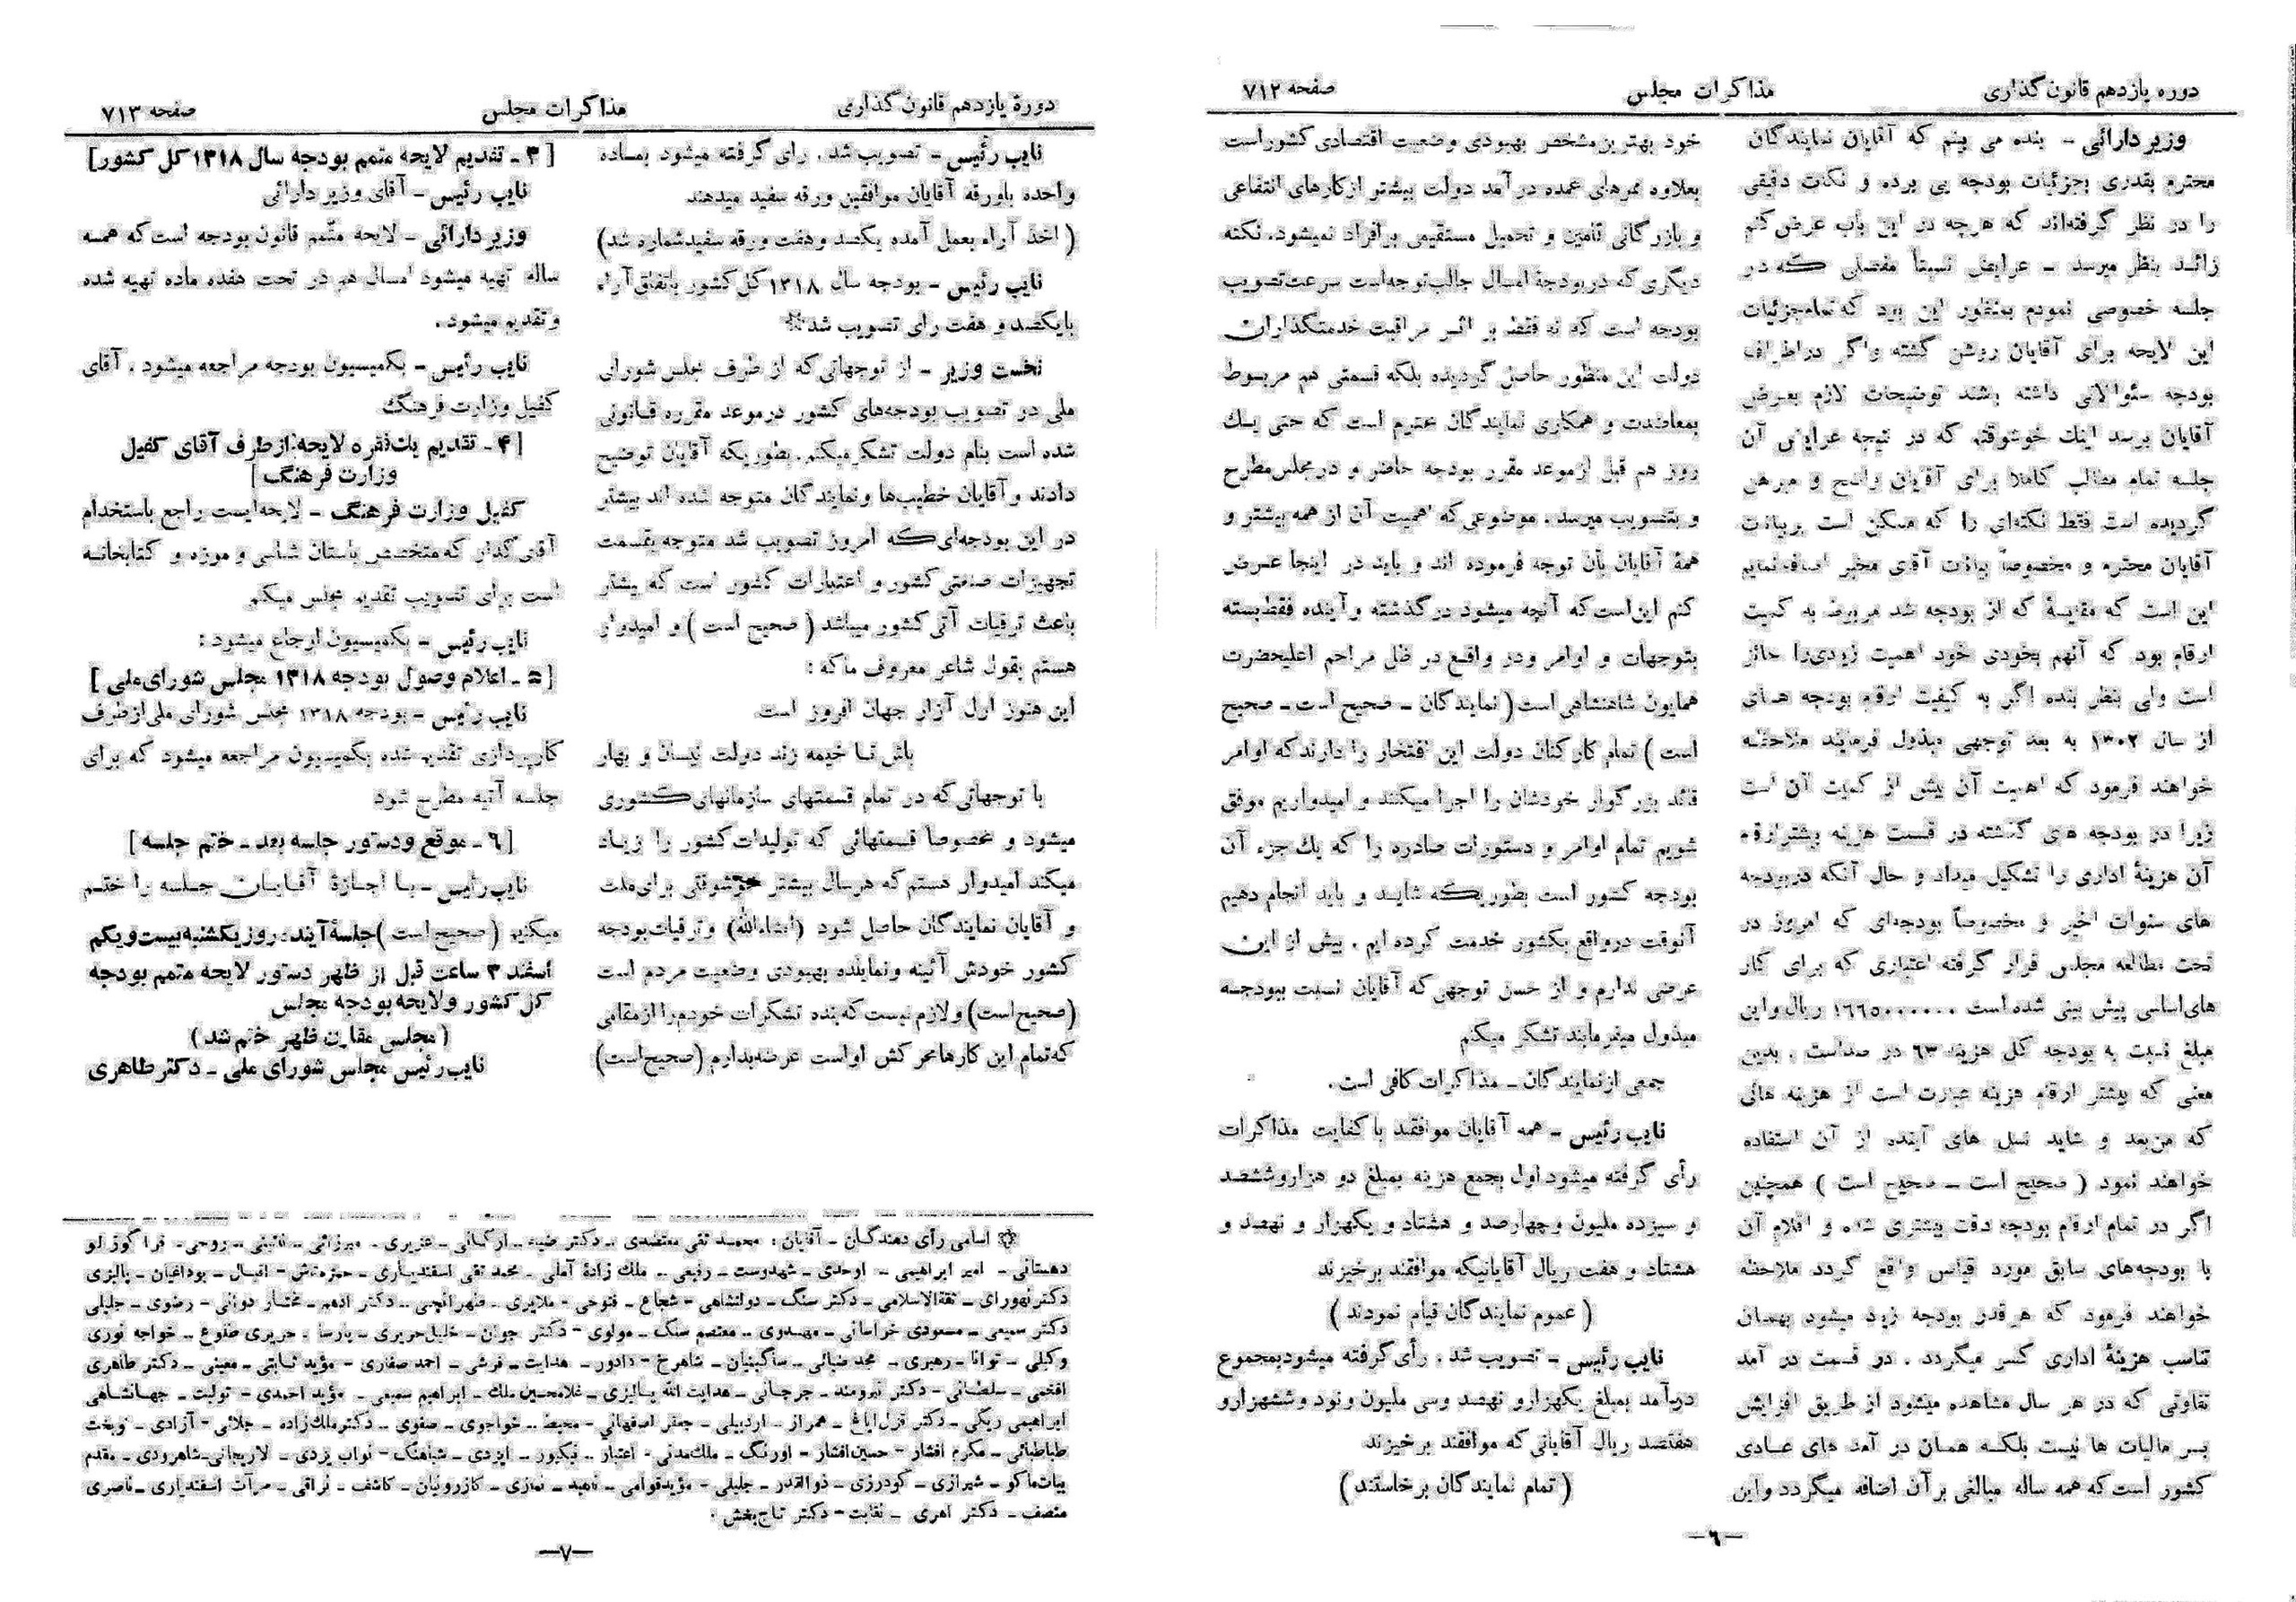 دوره یازدهم قانون گذاری
مذاکرات مجلس
صفحه ۷۱۲
وزیر دارائی – بنده می بینم که آقایان نمایندگان
محترم بقدری بجزئیات بودجه پی برده و نکات دقیقی
را در نظر گرفته‌اند که هرچه در این باب عرض کنم
زائد بنظر میرسد – عرایض نسبتاً مفصلی که در
جلسه خصوصی نمودم بمنظور این بود که تمام جزئیات
این لایحه برای آقایان روشن گشته واگر دراطراف
بودجه سئوالاتی داشته باشند توضیحات لازم بعرض
آقایان برسد اینك خوشوقتم که در نتیجه عرایض آن
جلسه تمام مطالب کاملا برای آقایان واضح و مبرهن
گردیده است فقط نکته‌ای را که ممکن است بربیانات
آقایان محترم و مخصوصاً بیانات آقای مخبر اضافه نمایم
این است که مقایسهٔ که از بودجه شد مربوط به کمیت
ارقام بود که آنهم بخودی خود اهمیت زیادی را حائز
است ولی بنظر بنده اگر به کیفیت ارقام بودجه هــای
از سال ۱۳۰۲ به بعد توجهی مبذول فرمایند ملاحظه
خواهند فرمود که اهمیت آن بیش از کمیت آن است
زیرا در بودجه های گذشته در قسمت هزینه بیشتر ارقام
آن هزینهٔ اداری را تشکیل میداد و حال آنکه در بودجه
های سنوات اخیر و مخصوصاً بودجه‌ای که امروز در
تحت مطالعه مجلس قرار گرفته اعتباری که برای کار
های اساسی پیش بینی شده است ۱٦٦۵۰۰۰۰۰۰ ریال و این
مبلغ نسبت به بودجه کل هزینه ٦۳ در صداست . بدین
معنی که بیشتر ارقام هزینه عبارت است از هزینه هائی
که من‌بعد و شاید نسل های آینده از آن استفاده
خواهند نمود ( صحیح است – صحیح است ) همچنین
اگر در تمام ارقام بودجه دقت بیشتری شده و اقلام آن
با بودجه‌های سابق مورد قیاس واقع گردد ملاحظه
خواهند فرمود که هر قدر بودجه زیاد میشود بهمان
تناسب هزینهٔ اداری کسر میگردد . در قسمت در آمد
تفاوتی که در هر سال مشاهده میشود از طریق افزایش
بــر مالیات ها نیست بلکــه همــان در آمد های عــادی
کشور است که همه ساله مبالغی بر آن اضافه میگردد واین
خود بهترین مشخص بهبودی وضعیت اقتصادی کشوراست
بعلاوه ممرهای عمده درآمد دولت بیشتر از کارهای انتفاعی
و بازرگانی تامین و تحمیل مستقیمی برافراد نمیشود. نکته
دیگری که در بودجهٔ امسال جالب توجه است سرعت تصویب
بودجه است که نه فقط بر اثــر مراقبت خدمتگذاران
دولت این منظور حاصل گردیده بلکه قسمتی هم مربــوط
بمعاضدت و همکاری نمایندگان محترم است که حتی یــك
روز هم قبل از موعد مقرر بودجه حاضر و در مجلس مطرح
و بتصویب میرسد . موضوعی که اهمیت آن از همه بیشتر و
همهٔ آقایان بآن توجه فرموده اند و باید در اینجا عــرض
کنم این است که آنچه میشود در گذشته و آینده فقط بسته
بتوجهات و اوامر ودر واقــع در ظل مراحم اعلیحضرت
همایون شاهنشاهی است ( نمایندگان – صحیح است – صحیح
است ) تمام کارکنان دولت این افتخار را دارند که اوامر
قائد بزرگوار خودشان را اجرا میکنند و امیدواریم موفق
شویم تمام اوامر و دستورات صادره را که یك جزء آن
بودجه کشور است بطوریکه شایــد و باید انجام دهیم
آنوقت در واقع بکشور خدمت کرده ایم . بیش از این
عرضی ندارم و از حسن توجهی که آقایان نسبت ببودجــه
مبذول میفرمایند تشکر میکنم
جمعی از نمایندگان – مذاکرات کافی است .
نایب رئیس – همه آقایان موافقند با کفایت مذاکرات
رأی گرفته میشود اول بجمع هزینه بمبلغ دو هزار و ششصد
و سیزده ملیون و چهارصد و هشتاد و یکهزار و نهصد و
هشتاد و هفت ریال آقایانیکه موافقند برخیزند
( عموم نمایندگان قیام نمودند )
نایب رئیس – تصویب شد . رأی گرفته میشود بمجموع
درآمد بمبلغ یکهزار و نهصد وسی ملیون و نود و ششهزار و
هفتصد ریال آقایانی که موافقند برخیزند
( تمام نمایندگان برخاستند )
–٦–
دورهٔ یازدهم قانون گذاری
مذاکرات مجلس
صفحه ۷۱۳
نایب رئیس – تصویب شد . رای گرفته میشود بمــاده
واحده باورقه آقایان موافقین ورقه سفید میدهند
( اخذ آراء بعمل آمده یکصد وهفت ورقه سفید شماره شد )
نایب رئیس – بودجه سال ۱۳۱۸ کل کشور باتفاق آراء
با یکصد و هفت رای تصویب شد*
نخست وزیر – از توجهاتی که از طرف مجلس شورای
ملی در تصویب بودجه‌های کشور درموعد مقرره قــانونی
شده است بنام دولت تشکر میکنم. بطوریکه آقایان توضیح
دادند و آقایان خطیب‌ها و نمایندگان متوجه شده اند بیشتر
در این بودجه‌ای که امروز تصویب شد متوجه بقسمت
تجهیزات صنعتی کشور و اعتبارات کشور است که بیشتر
باعث ترقیات آتی کشور میباشد ( صحیح است ) و امیدوار
هستم بقول شاعر معروف ما که :
این هنوز اول آزار جهان افروز است
باش تــا خیمه زند دولت نیسان و بهار
با توجهاتی که در تمام قسمتهای سازمانهای کشوری
میشود و مخصوصاً قسمتهائی که تولیدات کشور را زیــاد
میکند امیدوار هستم که هرسال بیشتر خوشوقتی برای ملت
و آقایان نمایندگان حاصل شود (انشاءالله) و ترقیات بودجه
کشور خودش آئینه ونماینده بهبودی وضعیت مردم است
(صحیح است) و لازم نیست که بنده تشکرات خودم را از مقامی
که تمام این کارها محرکش اواست عرضه بدارم (صحیح است)
[ ۳ – تقدیم لایحه متمم بودجه سال ۱۳۱۸ کل کشور]
نایب رئیس – آقای وزیر دارائی
وزیر دارائی – لایحه متمم قانون بودجه است که همــه
ساله تهیه میشود امسال هم در تحت هفده ماده تهیه شده
و تقدیم میشود .
نایب رئیس – بکمیسیون بودجه مراجعه میشود . آقای
کفیل وزارت فرهنگ
[ ۴ – تقدیم یك فقره لایحه از طرف آقای کفیل
وزارت فرهنگ ]
کفیل وزارت فرهنگ – لایحه ایست راجع باستخدام
آقای گدار که متخصص باستان شناسی و موزه و کتابخانــه
است برای تصویب تقدیم مجلس میکنم
نایب رئیس – بکمیسیون ارجاع میشود :
[ ۵ – اعلام وصول بودجه ۱۳۱۸ مجلس شورای ملی ]
نایب رئیس – بودجه ۱۳۱۸ مجلس شورای ملی از طرف
کارپردازی تقدیم شده بکمیسیون مراجعه میشود که برای
جلسه آتیه مطرح شود
[ ٦ – موقع و دستور جلسه بعد – ختم جلسه ]
نایب رئیس – بــا اجــازهٔ آقایــان جلسه را ختــم
میکنیم ( صحیح است ) جلسهٔ آینده روز یکشنبه بیست ویکم
اسفند ۳ ساعت قبل از ظهر دستور لایحه متمم بودجه
کل کشور و لایحه بودجه مجلس
( مجلس مقارن ظهر ختم شد )
نایب رئیس مجلس شورای ملی – دکتر طاهری
* اسامی رأی دهندگــان – آقایان : محمــد تقی معتضدی – دکتر ضیاء – ارگــانی – عزیزی – میرزائی – نائینی – روحی – قراگوزلو
دهستانی – امیر ابراهیمی – اوحدی – شهدوست – رفیعی – ملك زادهٔ آملی – محمد تقی اسفندیــاری – حمزه‌تاش – اقبــال – بوداغیان – پالیزی
ثقة‌الاسلامی – دکتر سنگ – دولتشاهی – شجاع – فتوحی – ملایری – طهرانچی – دکتر ادهم – مختــار دوانی – رضوی – جلیلی
دکتر سمیعی – مسعودی خراسانی – مهــدوی – معتصم سنگ – مولوی – دکتر جوان – خلیل حریری – پارسا – حریری طلوع – خواجه نوری
وکیلی – توانا – رهبری – مجد ضیائی – سنگینیان – شاهرخ – دادور – هدایت – قرشی – احمد صفاری – مؤید ثــابتی – معینی – دکتر طاهری
افخمی – سلطــانی – دکتر نیرومند – جرجــانی – هدایت الله پــالیزی – غلامحسین ملك – ابراهیم سمیعی – مؤید احمدی – تولیت – جهــانشــاهی
ابراهیمی ریگی – دکتر قزل ایاغ – همراز – اردبیلی – جعفر اصفهانی – محیط – خواجوی – صفوی – دکتر ملك زاده – جلائی – آزادی – نوبخت
طباطبائی – مکرم افشار – حسین افشار – اورنگ – ملك مدنی – اعتبار – نیکپور – ایزدی – شباهنگ – نواب یزدی – لاریجانی – شاهرودی – مقدم
بیات ماکو – شیرازی – گودرزی – ذوالقدر – جلیلی – مؤید قوامی – ناهیــد – نمازی – کازرونیان – کاشف – نراقی – مرآت اسفندیاری – ناصری
منصف – دکتر اهری – نقابت – دکتر تاج بخش .
–۷–